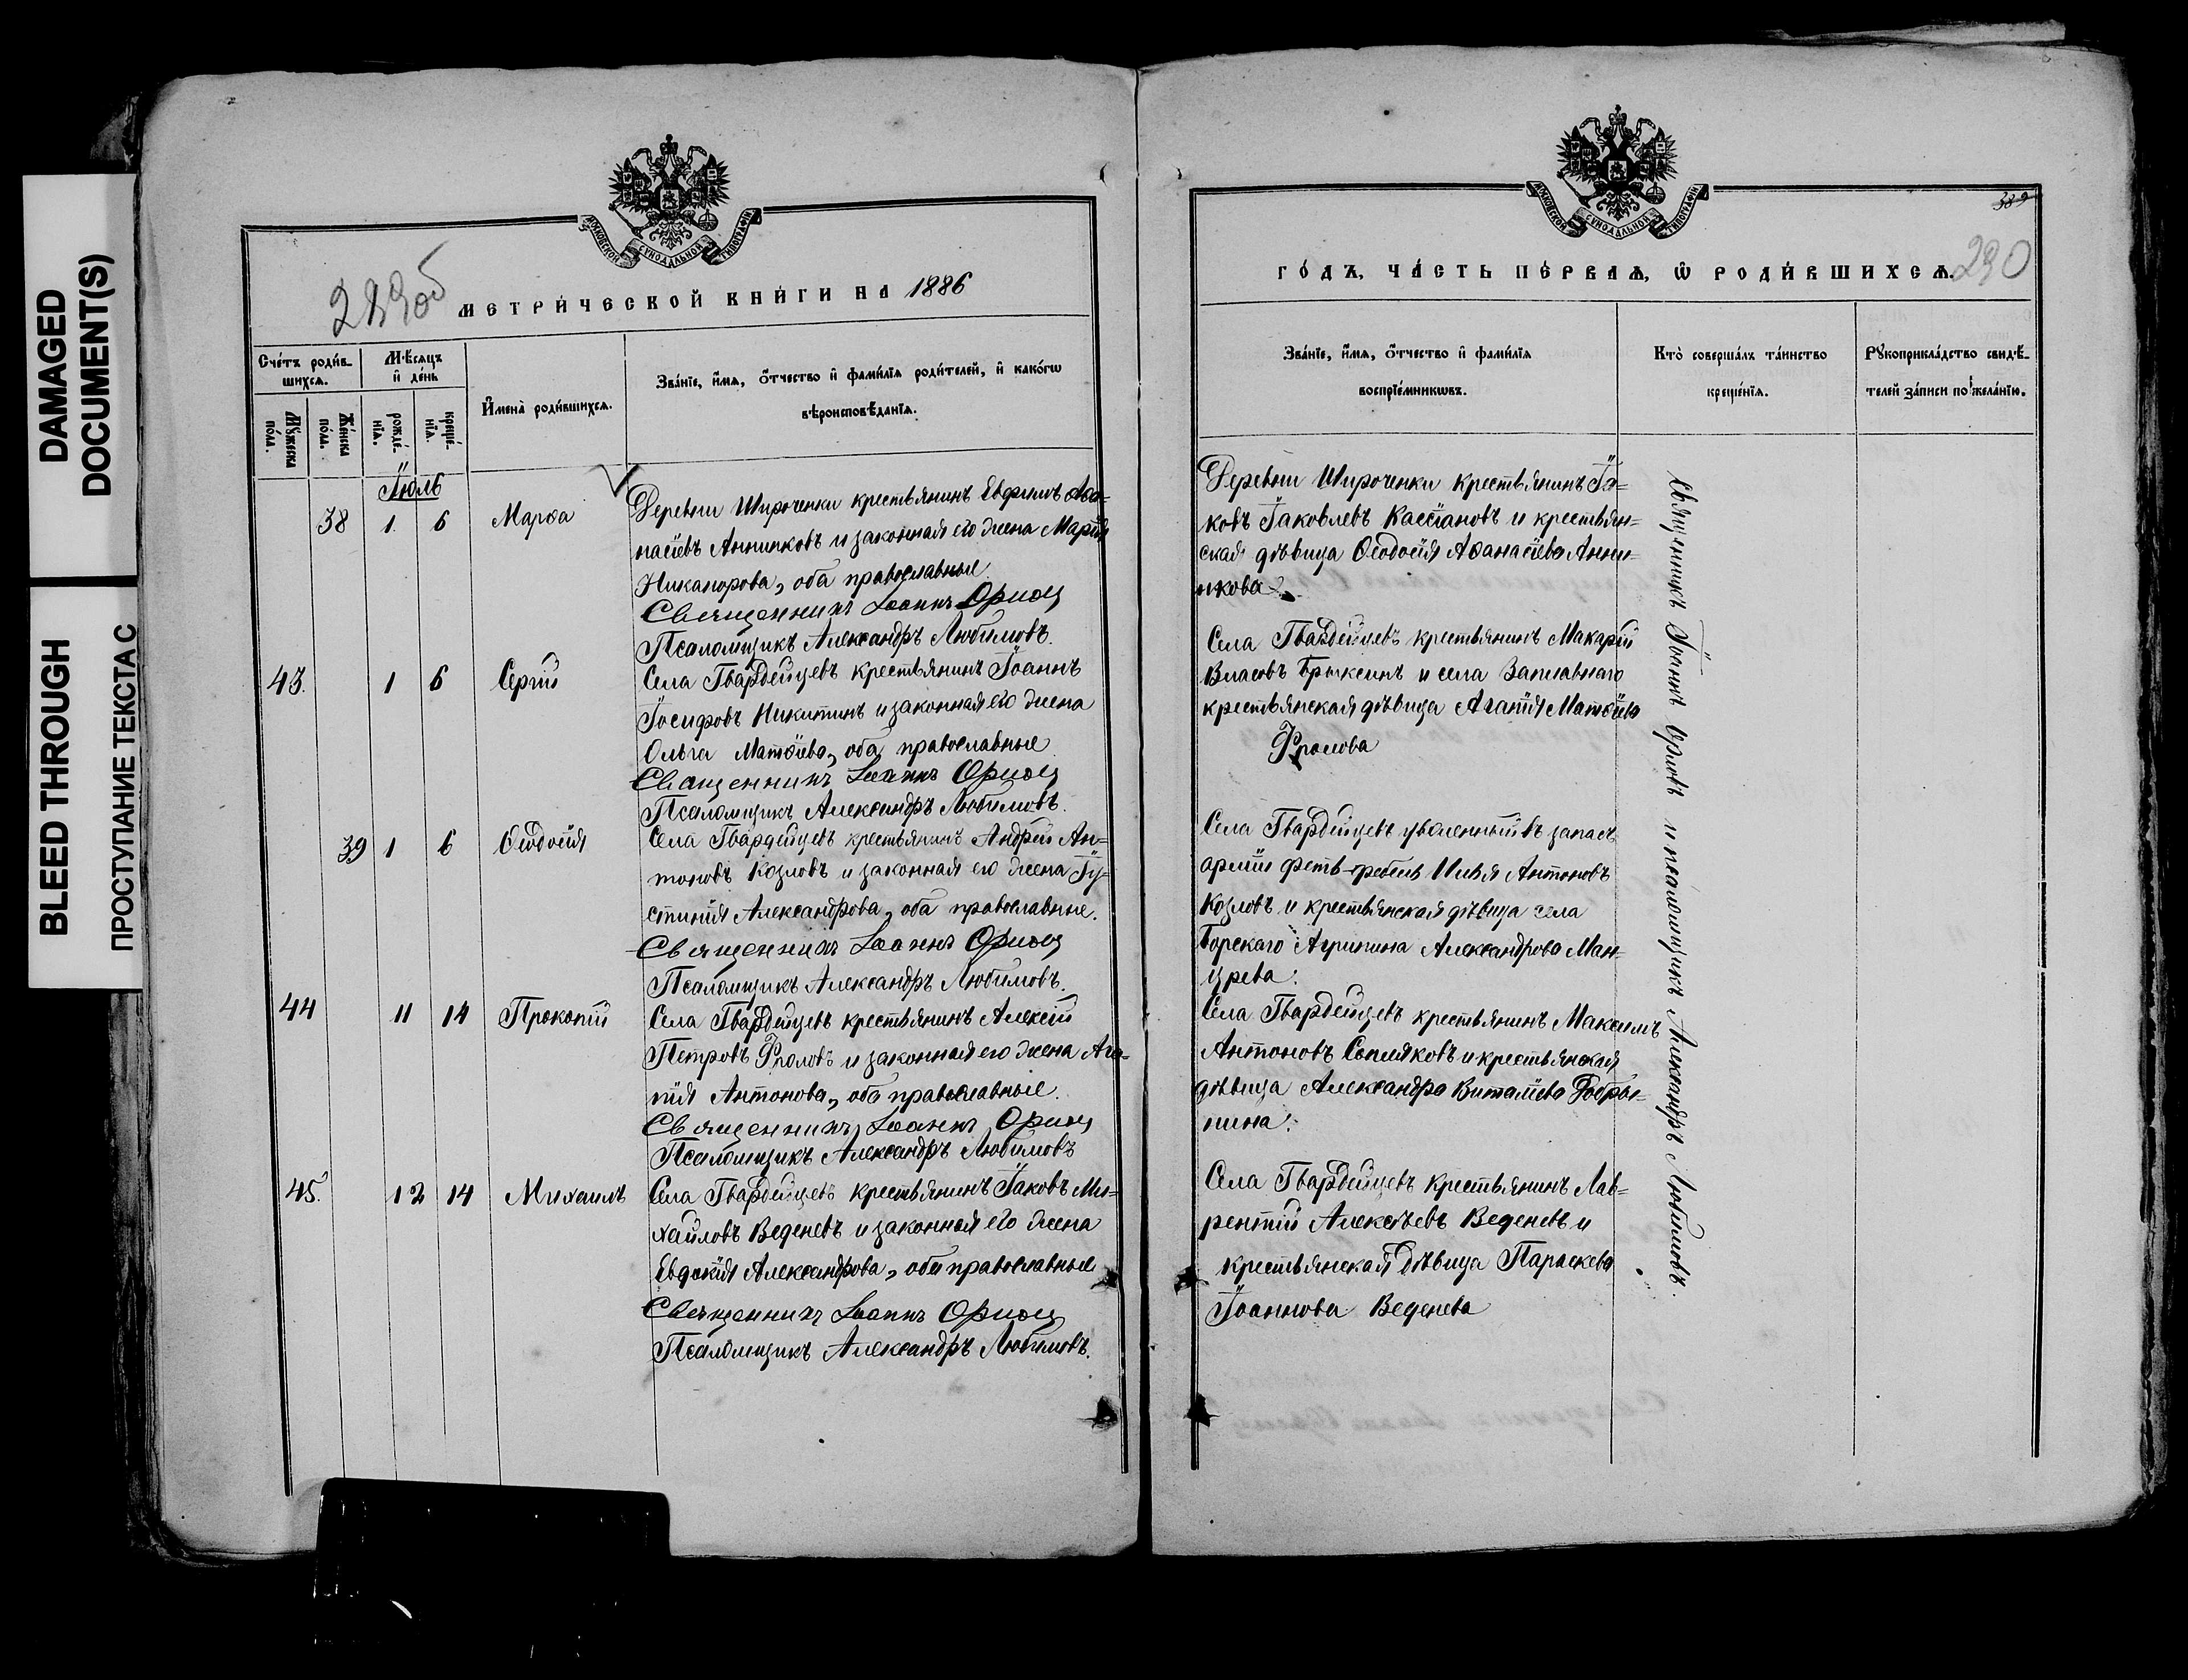 DAMAGED
DOCUMENT(S)
BLEED THROUGH
ПРОСТУПАНИЕ ТЕКСТА С
МОСКОВСКОЙ СѴНОДАЛЬНОЙ ТИПОГРАФІИ
289об
МЕТРИ́ЧЕСКОЙ КНИ́ГИ НА 1886
Сче́тъ роди́вшихсѧ.
Мꙋ́жеска по́ла.
Же́нска по́ла.
Мѣ́сѧцъ и҆ де́нь
рожде́нїѧ.
креще́нїѧ.
И҆мена̀ роди́вшихсѧ.
Зва́нїе, и҆́мѧ, ѻ҆́тчество и҆ фами́лїѧ роди́телей, и҆ како́гѡ
вѣроисповѣ́данїѧ.
Іюль
38 1. 6 Марѳа
Деревни Широченки крестьянинъ Евфимъ Аѳа=
насіевъ Аннинковъ и законная его жена Марія
Никанорова, оба православные
Священникъ Іоаннъ Орловъ
Псаломщикъ Александръ Любимовъ.
43. 1 6 Сергій
Села Гвардейцевъ крестьянинъ Іоаннъ
Іосифовъ Никитинъ и законная его жена
Ольга Матѳіева, оба православные
Священникъ Іоаннъ Орловъ
Псаломщикъ Александръ Любимовъ.
39 1 6 Ѳеодосія
Села Гвардейцевъ крестьянинъ Андрей Ан=
тоновъ Козловъ и законная его жена Іу=
стинія Александрова, оба православные.
Священникъ Іоаннъ Орловъ
Псаломщикъ Александръ Любимовъ.
44 11 14 Прокопій
Села Гвардейцевъ крестьянинъ Алексій
Петровъ Фроловъ и законная его жена Ага=
пія Антонова, оба православные.
Священникъ Іоаннъ Орловъ
Псаломщикъ Александръ Любимовъ
45. 12 14 Михаилъ
Села Гвардейцевъ крестьянинъ Іаковъ Ми=
хайловъ Веденевъ и законная его жена
Евдокія Александрова, оба православные
Священникъ Іоаннъ Орловъ
Псаломщикъ Александръ Любимовъ.
МОСКОВСКОЙ СѴНОДАЛЬНОЙ ТИПОГРАФІИ
389
ГО́ДЪ, ЧА́СТЬ ПЕ́РВАѦ, Ѡ҆ РОДИ́ВШИХСѦ. 290
Зва́нїе, и҆́мѧ, ѻ҆́тчество и҆ фами́лїѧ
воспрїе́мникѡвъ.
Кто̀ соверша́лъ та́инство
креще́нїѧ.
Рꙋкоприкла́дство свидѣ́-
телей за́писи по жела́нїю.
Деревни Широченки крестьянинъ Іа=
ковъ Іаковлевъ Кассіановъ и крестьян=
ская дѣвица Ѳеодосія Аѳанасіева Анни=
нкова
Села Гвардейцевъ крестьянинъ Макарій
Власовъ Брыксинъ и села Заплавнаго
крестьянская дѣвица Агапія Матѳіева
Фролова
Села Гвардейцевъ уволенный въ запасъ
арміи Илья Антоновъ
Козловъ и крестьянская дѣвица села
Борскаго Агрипина Александрова Ман=
црева.
Села Гвардейцевъ крестьянинъ Максимъ
Антоновъ и крестьянская
дѣвица Александра Виталіева Добры=
нина.
Села Гвардейцевъ крестьянинъ Лав=
рентій Алексѣевъ Веденевъ и
крестьянская дѣвица Параскева
Іоаннова Веденева
Священникъ Іоаннъ Орловъ и псаломщикъ Александръ Любимовъ.